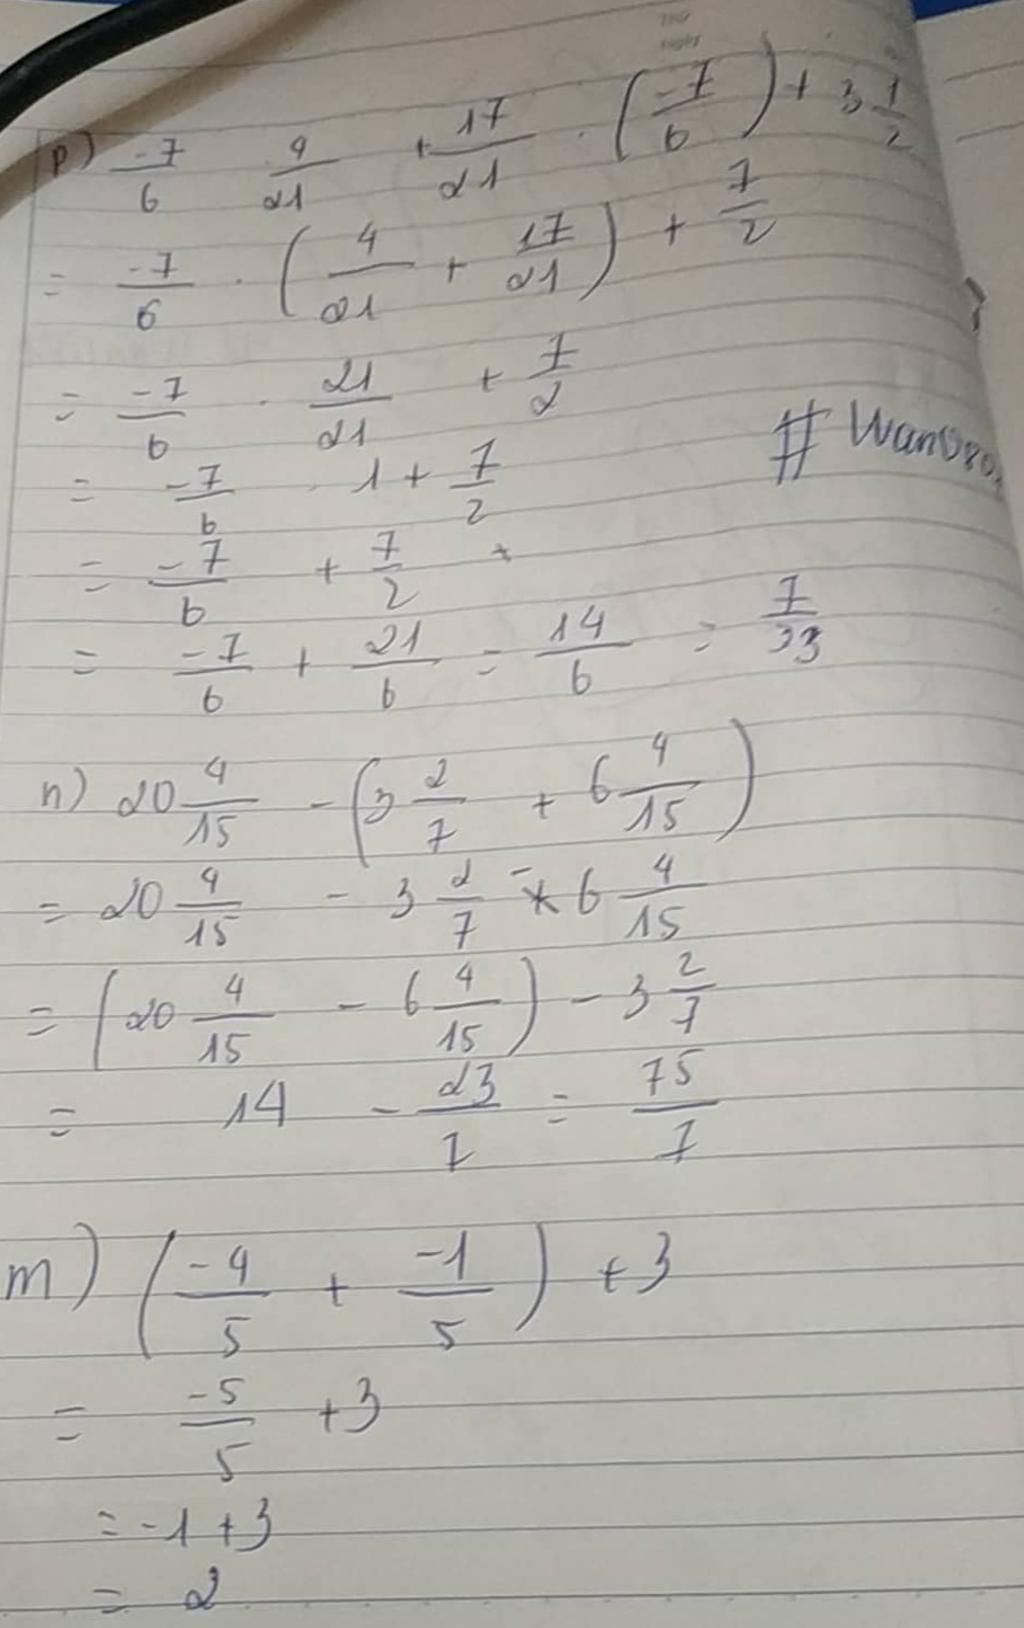 p) -7/6 4/21 + 17/21 . (-7/6) + 3 1/2
= -7/6 . (4/21 + 17/21) + 7/2
= -7/6 . 21/21 + 7/2
= -7/6 . 1 + 7/2
= -7/6 + 7/2
= -7/6 + 21/6 = 14/6 = 7/33
n) 20 4/15 - (3 2/7 + 6 4/15)
= 20 4/15 - 3 2/7 - 6 4/15
= (20 4/15 - 6 4/15) - 3 2/7
= 14 - 23/7 = 75/7
m) (-4/5 + -1/5) + 3
= -5/5 + 3
= -1 + 3
= 2